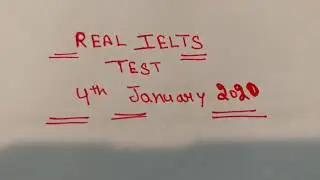 REAL IELTS
TEST
4th January 2020